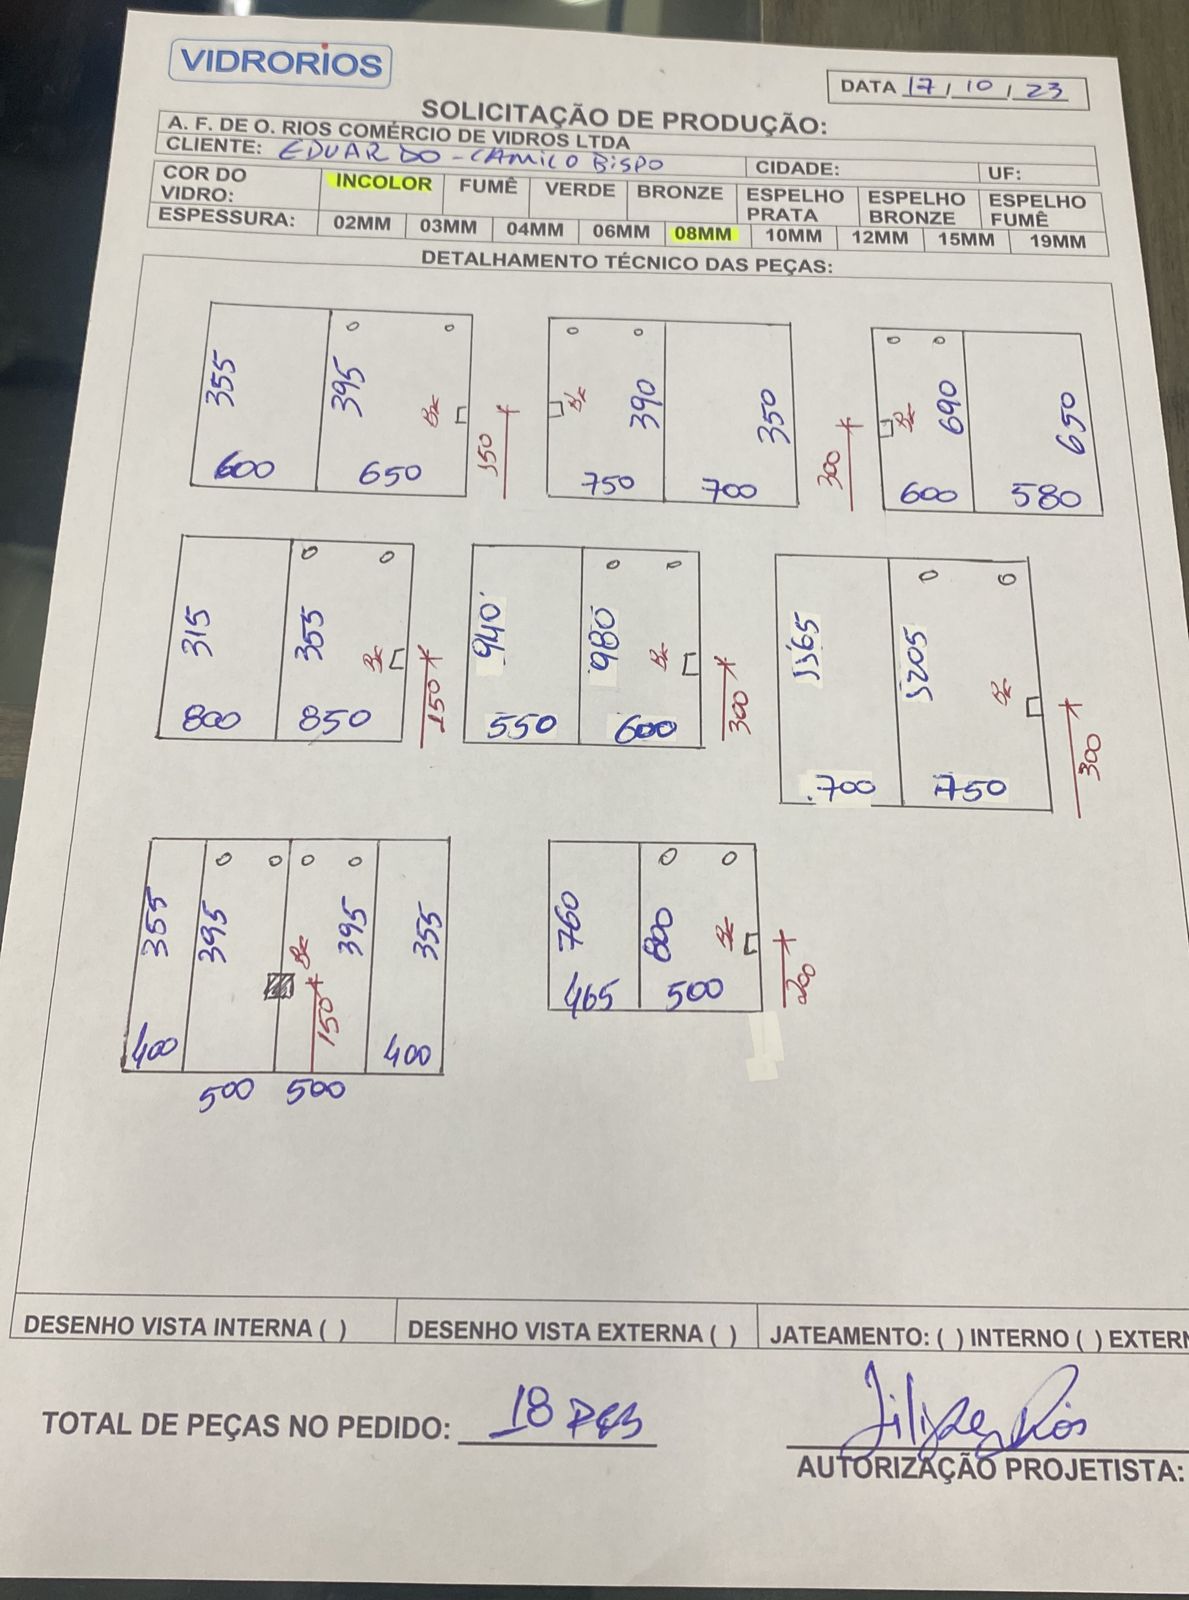 VIDRORIOS
DATA 17 / 10 / 23
SOLICITAÇÃO DE PRODUÇÃO:
A. F. DE O. RIOS COMÉRCIO DE VIDROS LTDA
CLIENTE: EDUARDO - CAMILO BISPO CIDADE: UF:
COR DO VIDRO: INCOLOR FUMÊ VERDE BRONZE ESPELHO PRATA ESPELHO BRONZE ESPELHO FUMÊ
ESPESSURA: 02MM 03MM 04MM 06MM 08MM 10MM 12MM 15MM 19MM
DETALHAMENTO TÉCNICO DAS PEÇAS:
355 395 390 350 690 650
600 650 150 750 700 300 600 580
315 355 940 980 1165 1205
800 850 150 550 600 300 700 750 300
355 395 395 355 760 800
400 150 400 465 500 200
500 500
DESENHO VISTA INTERNA ( ) DESENHO VISTA EXTERNA ( ) JATEAMENTO: ( ) INTERNO ( ) EXTERN
TOTAL DE PEÇAS NO PEDIDO: 18 PÇS
Filipe Rios
AUTORIZAÇÃO PROJETISTA: